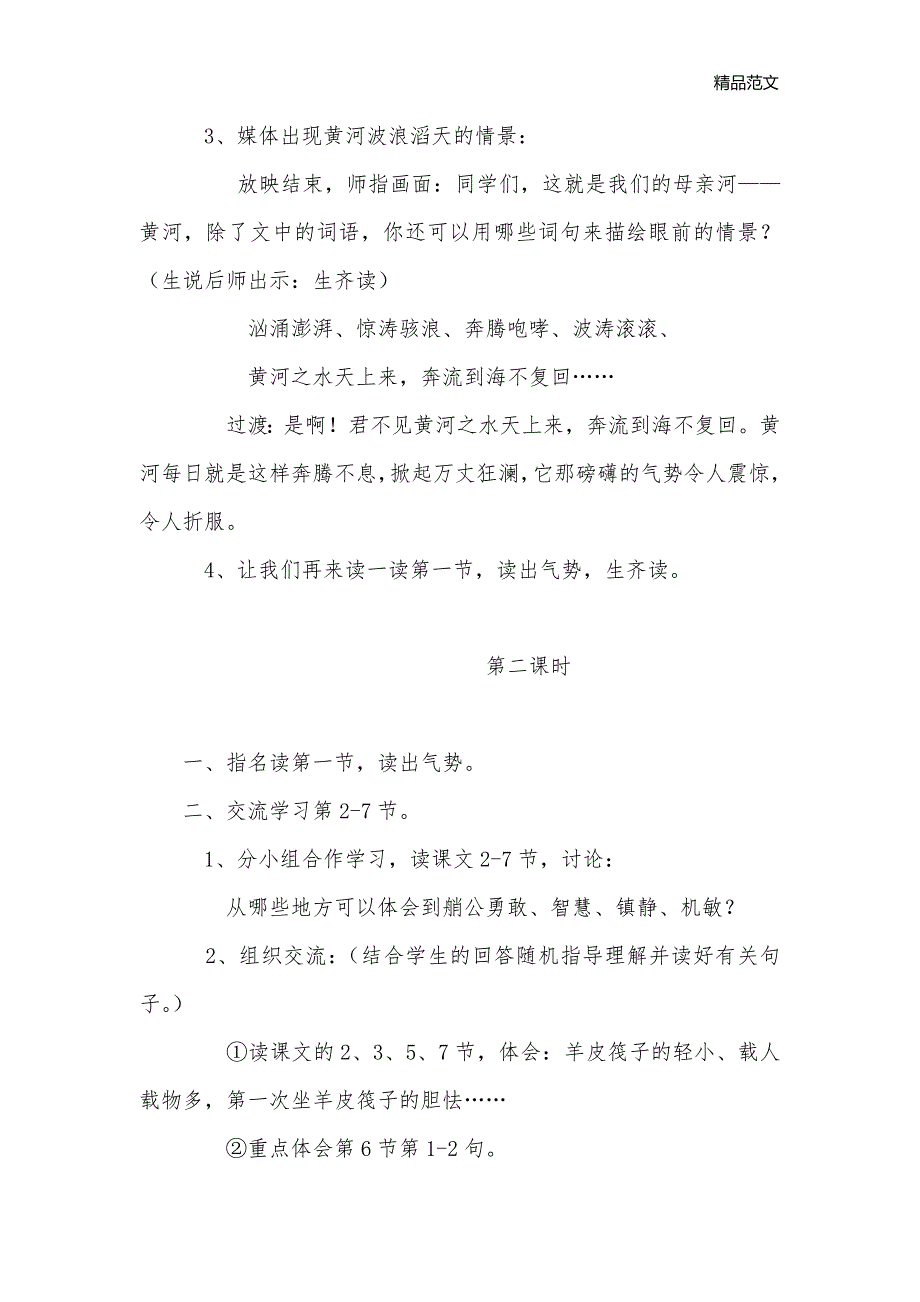 精品范文
3、媒体出现黄河波浪滔天的情景：
放映结束，师指画面：同学们，这就是我们的母亲河——
黄河，除了文中的词语，你还可以用哪些词句来描绘眼前的情景？
（生说后师出示：生齐读）
汹涌澎湃、惊涛骇浪、奔腾咆哮、波涛滚滚、
黄河之水天上来，奔流到海不复回……
过渡：是啊！君不见黄河之水天上来，奔流到海不复回。黄
河每日就是这样奔腾不息，掀起万丈狂澜，它那磅礴的气势令人震惊，
令人折服。
4、让我们再来读一读第一节，读出气势，生齐读。
第二课时
一、指名读第一节，读出气势。
二、交流学习第 2-7 节。
1、分小组合作学习，读课文 2-7 节，讨论：
从哪些地方可以体会到艄公勇敢、智慧、镇静、机敏？
2、组织交流：（结合学生的回答随机指导理解并读好有关句
子。）
①读课文的 2、3、5、7 节，体会：羊皮筏子的轻小、载人
载物多，第一次坐羊皮筏子的胆怯……
②重点体会第 6 节第 1-2 句。